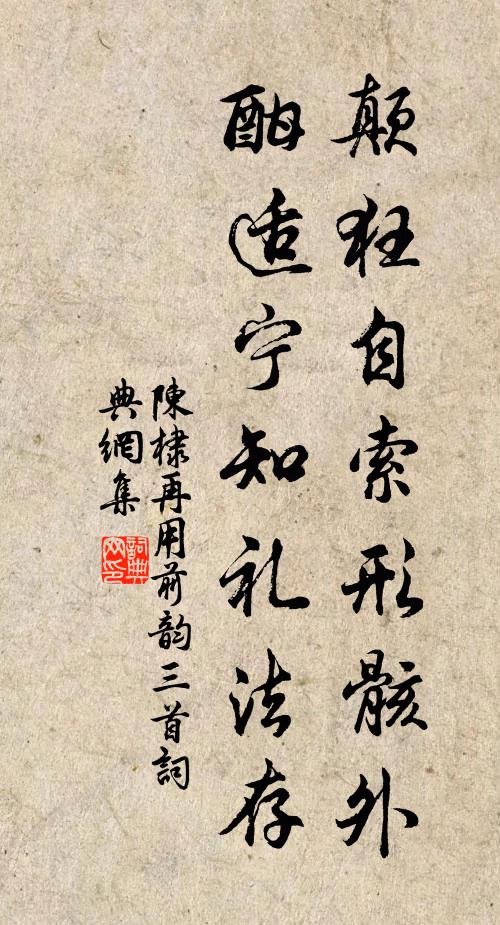 颠狂自索形骸外
酣适宁知礼法存
陳棣再用前韵三首詞
典網集
詞典
网印